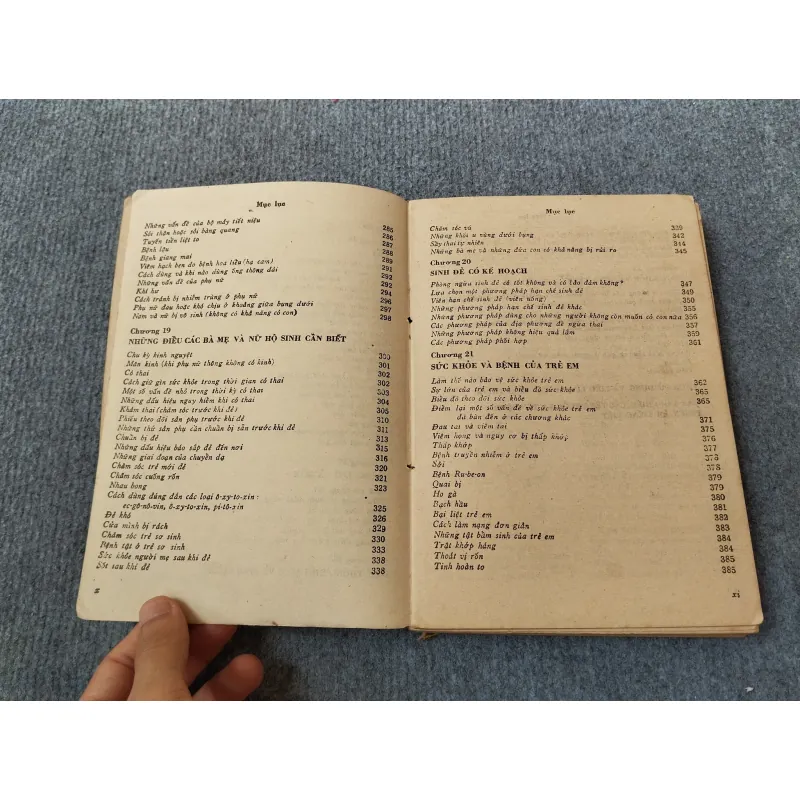 Mục lục
Những vấn đề của bộ máy tiết niệu 285
Sỏi thận hoặc sỏi bàng quang 286
Tuyến tiền liệt to 286
Bệnh lậu 287
Bệnh giang mai 288
Viêm hạch bẹn do bệnh hoa liễu (hạ cam) 289
Cách dùng và khi nào dùng ống thông đái 291
Những vấn đề của phụ nữ 292
Khí hư 292
Cách tránh bị nhiễm trùng ở phụ nữ 294
Phụ nữ đau hoặc khó chịu ở khoảng giữa bụng dưới 296
Nam và nữ bị vô sinh (không có khả năng có con) 297
298
Chương 19
NHỮNG ĐIỀU CÁC BÀ MẸ VÀ NỮ HỘ SINH CẦN BIẾT
Chu kỳ kinh nguyệt 300
Mãn kinh (khi phụ nữ thông không có kinh) 301
Có thai 302
Cách giữ gìn sức khỏe trong thời gian có thai 302
Một số vấn đề nhỏ trong thời kỳ có thai 303
Những dấu hiệu nguy hiểm khi có thai 304
Khám thai (chăm sóc trước khi đẻ) 305
Phiếu theo dõi sản phụ trước khi đẻ 310
Những thứ sản phụ cần chuẩn bị sẵn trước khi đẻ 311
Chuẩn bị đẻ 313
Những dấu hiệu báo sắp đẻ đến nơi 315
Những giai đoạn của chuyển dạ 316
Chăm sóc trẻ mới đẻ 320
Chăm sóc cuống rốn 321
Nhau bong 323
Cách dùng đúng đắn các loại ô-xy-to-xin :
ec-gô-nô-vin, ô-xy-to-xin, pi-tô-xin 325
Đẻ khó 326
Cửa mình bị rách 329
Chăm sóc trẻ sơ sinh 330
Bệnh tật ở trẻ sơ sinh 333
Sức khỏe người mẹ sau khi đẻ 338
Sốt sau khi đẻ 338
x
Mục lục
Chăm sóc vú 339
Những khối u vùng dưới bụng 342
Sảy thai tự nhiên 344
Những bà mẹ và những đứa con có khả năng bị rủi ro 345
Chương 20
SINH ĐẺ CÓ KẾ HOẠCH
Phòng ngừa sinh đẻ có tốt không và có bảo đảm không? 347
Lựa chọn một phương pháp hạn chế sinh đẻ 349
Viên hạn chế sinh đẻ (viên uống) 350
Những phương pháp hạn chế sinh đẻ khác 355
Những phương pháp dùng cho những người không còn muốn có con nữa 356
Các phương pháp của địa phương để ngừa thai 357
Những phương pháp không hiệu quả lắm 359
Các phương pháp phối hợp 361
Chương 21
SỨC KHỎE VÀ BỆNH CỦA TRẺ EM
Làm thế nào bảo vệ sức khỏe trẻ em 362
Sự lớn của trẻ em và biểu đồ sức khỏe 365
Biểu đồ theo dõi sức khỏe 365
Điểm lại một số vấn đề về sức khỏe trẻ em
đã bàn đến ở các chương khác 371
Đau tai và viêm tai 375
Viêm họng và nguy cơ bị thấp khớp 376
Thấp khớp 377
Bệnh truyền nhiễm ở trẻ em 378
Sởi 378
Bệnh Ru-be-on 379
Quai bị 379
Ho gà 380
Bạch hầu 381
Bại liệt trẻ em 381
Cách làm nạng đơn giản 383
Những tật bẩm sinh của trẻ em 384
Trật khớp háng 384
Thoát vị rốn 385
Tinh hoàn to 385
xi